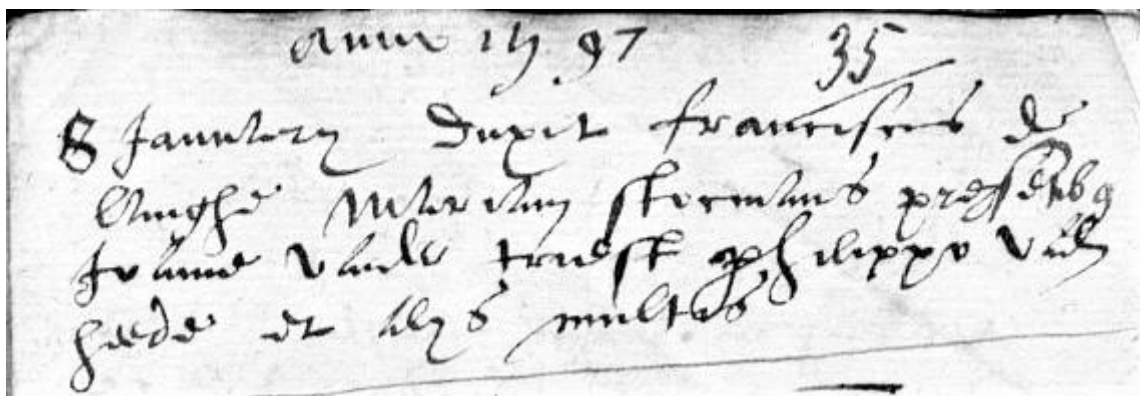 Anno 15 97 35
8 Januarij Duxit franciscus de
langhe Mariam stermans presentib9
Joanne vande driesch philippo vand
heede et alijs multis